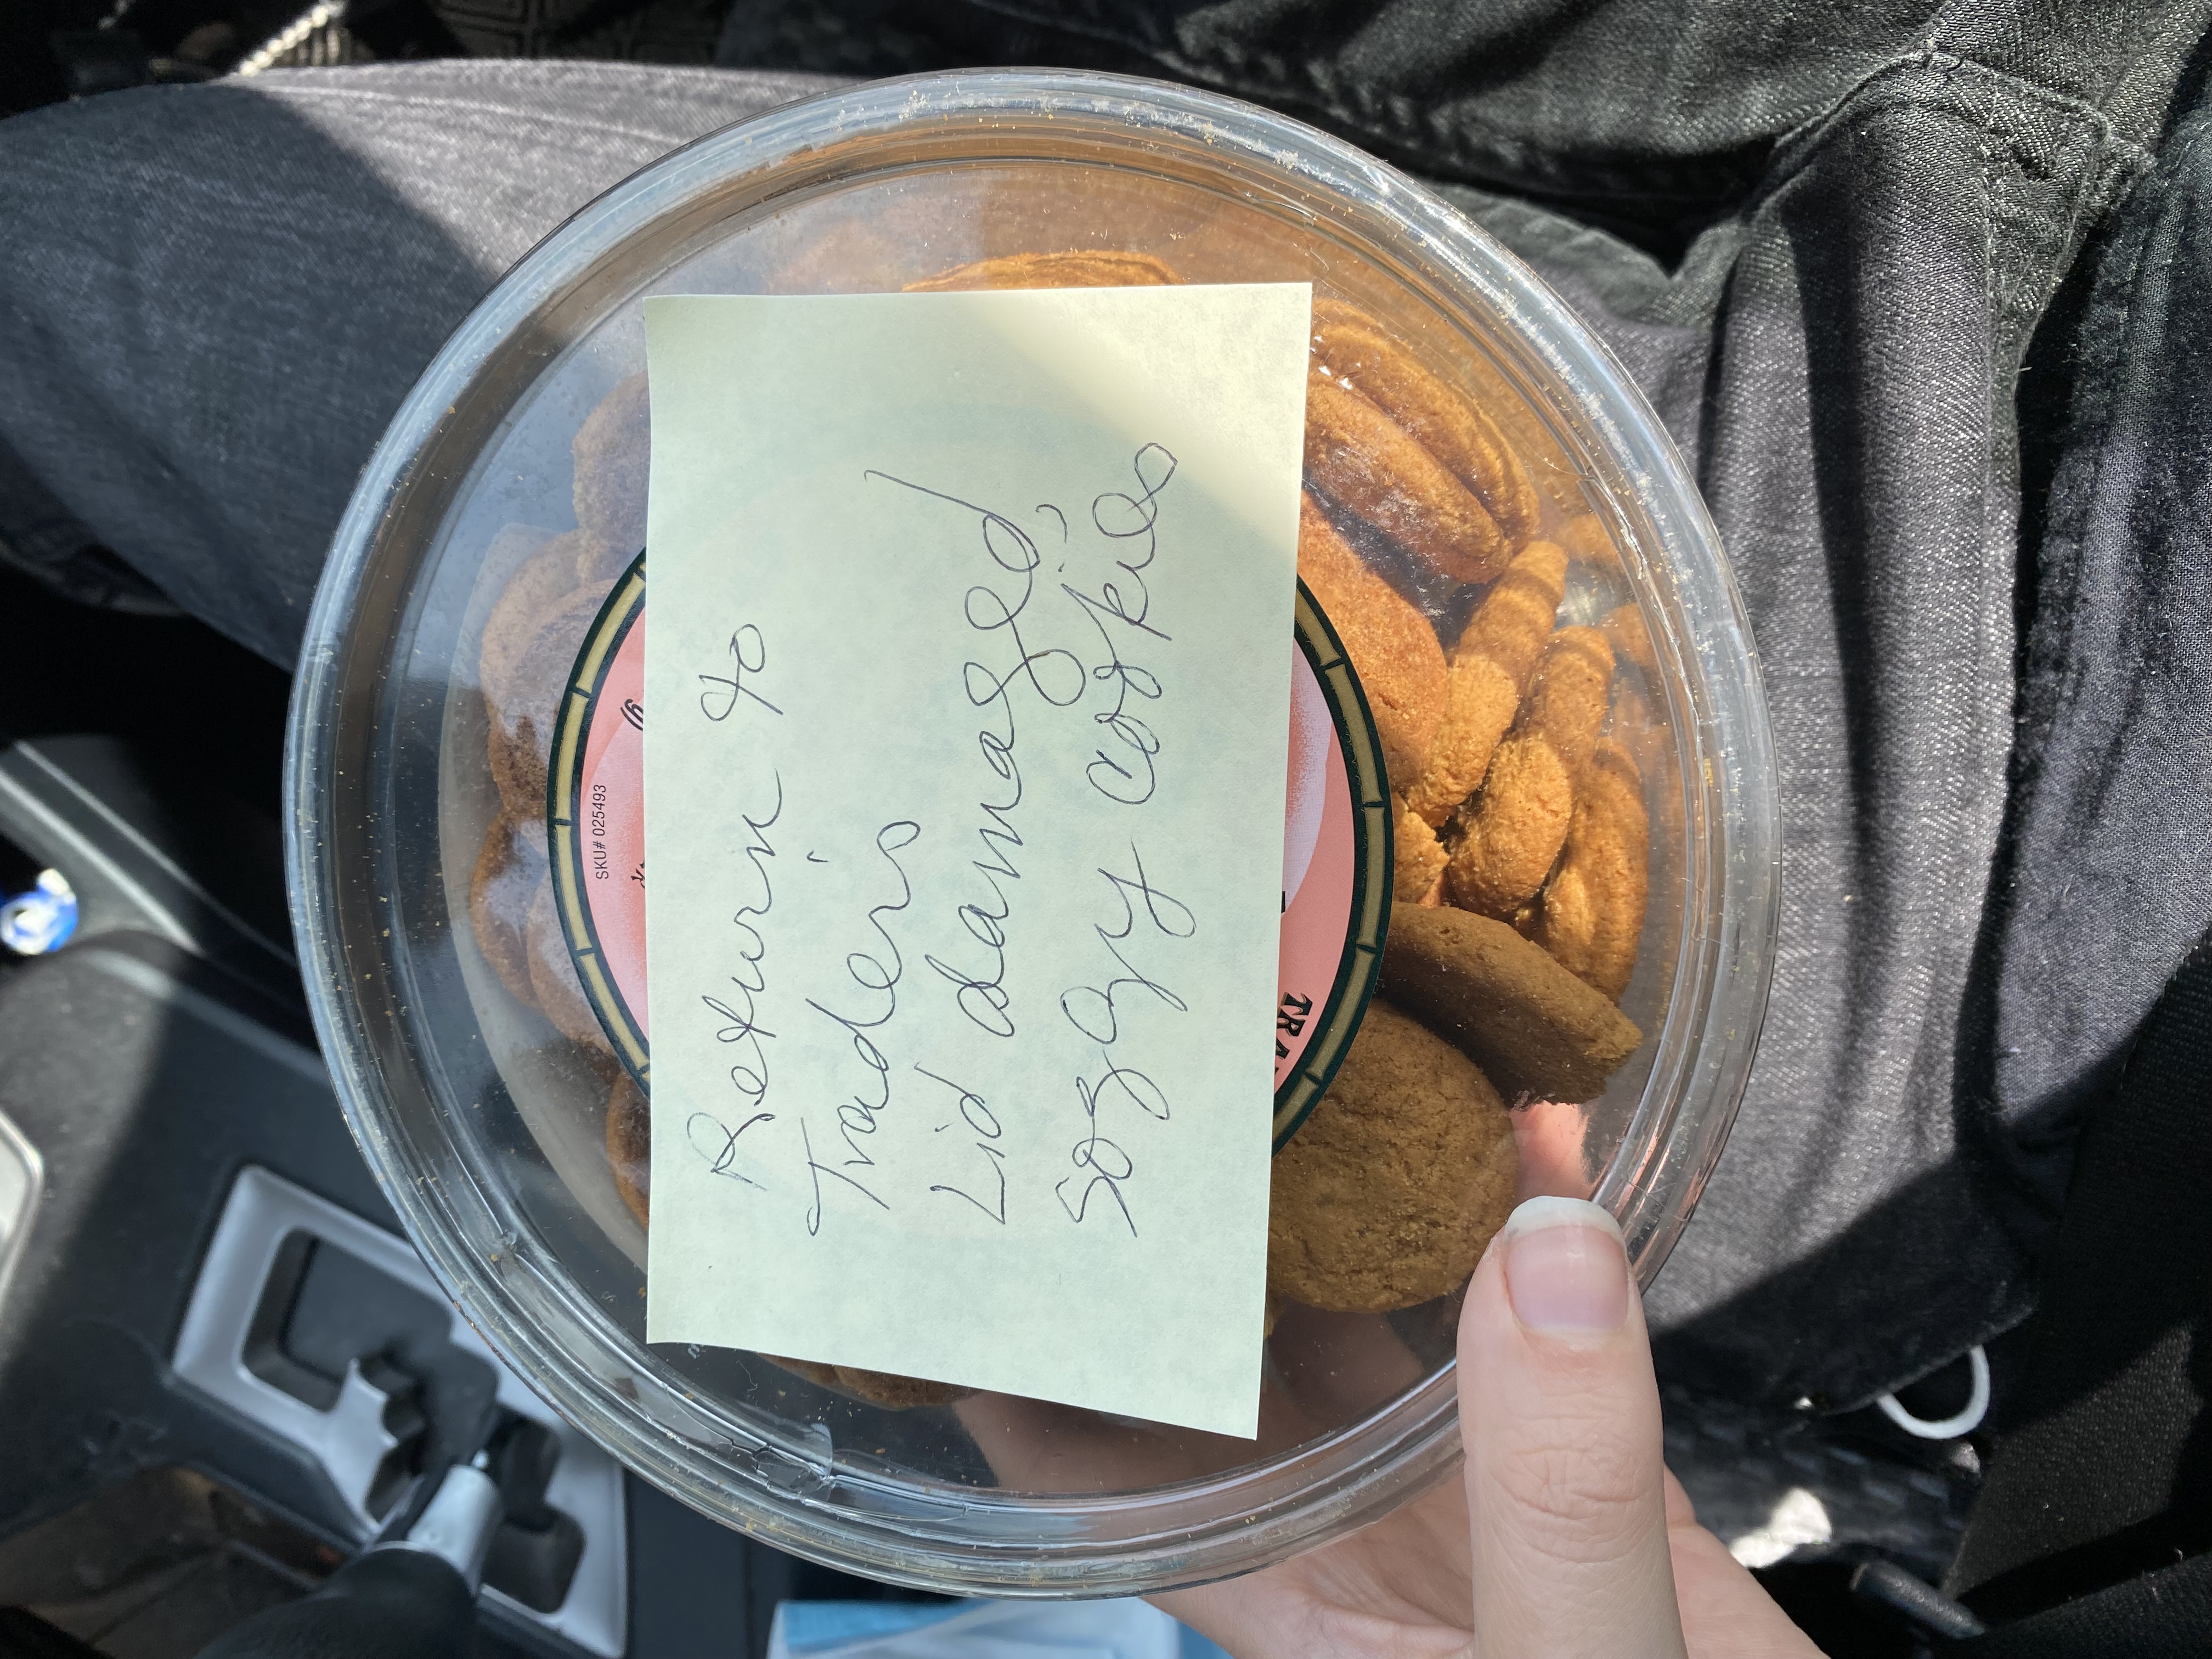 SKU# 025493
Return to
Trader's
Lid damaged,
soggy cookies
TRA